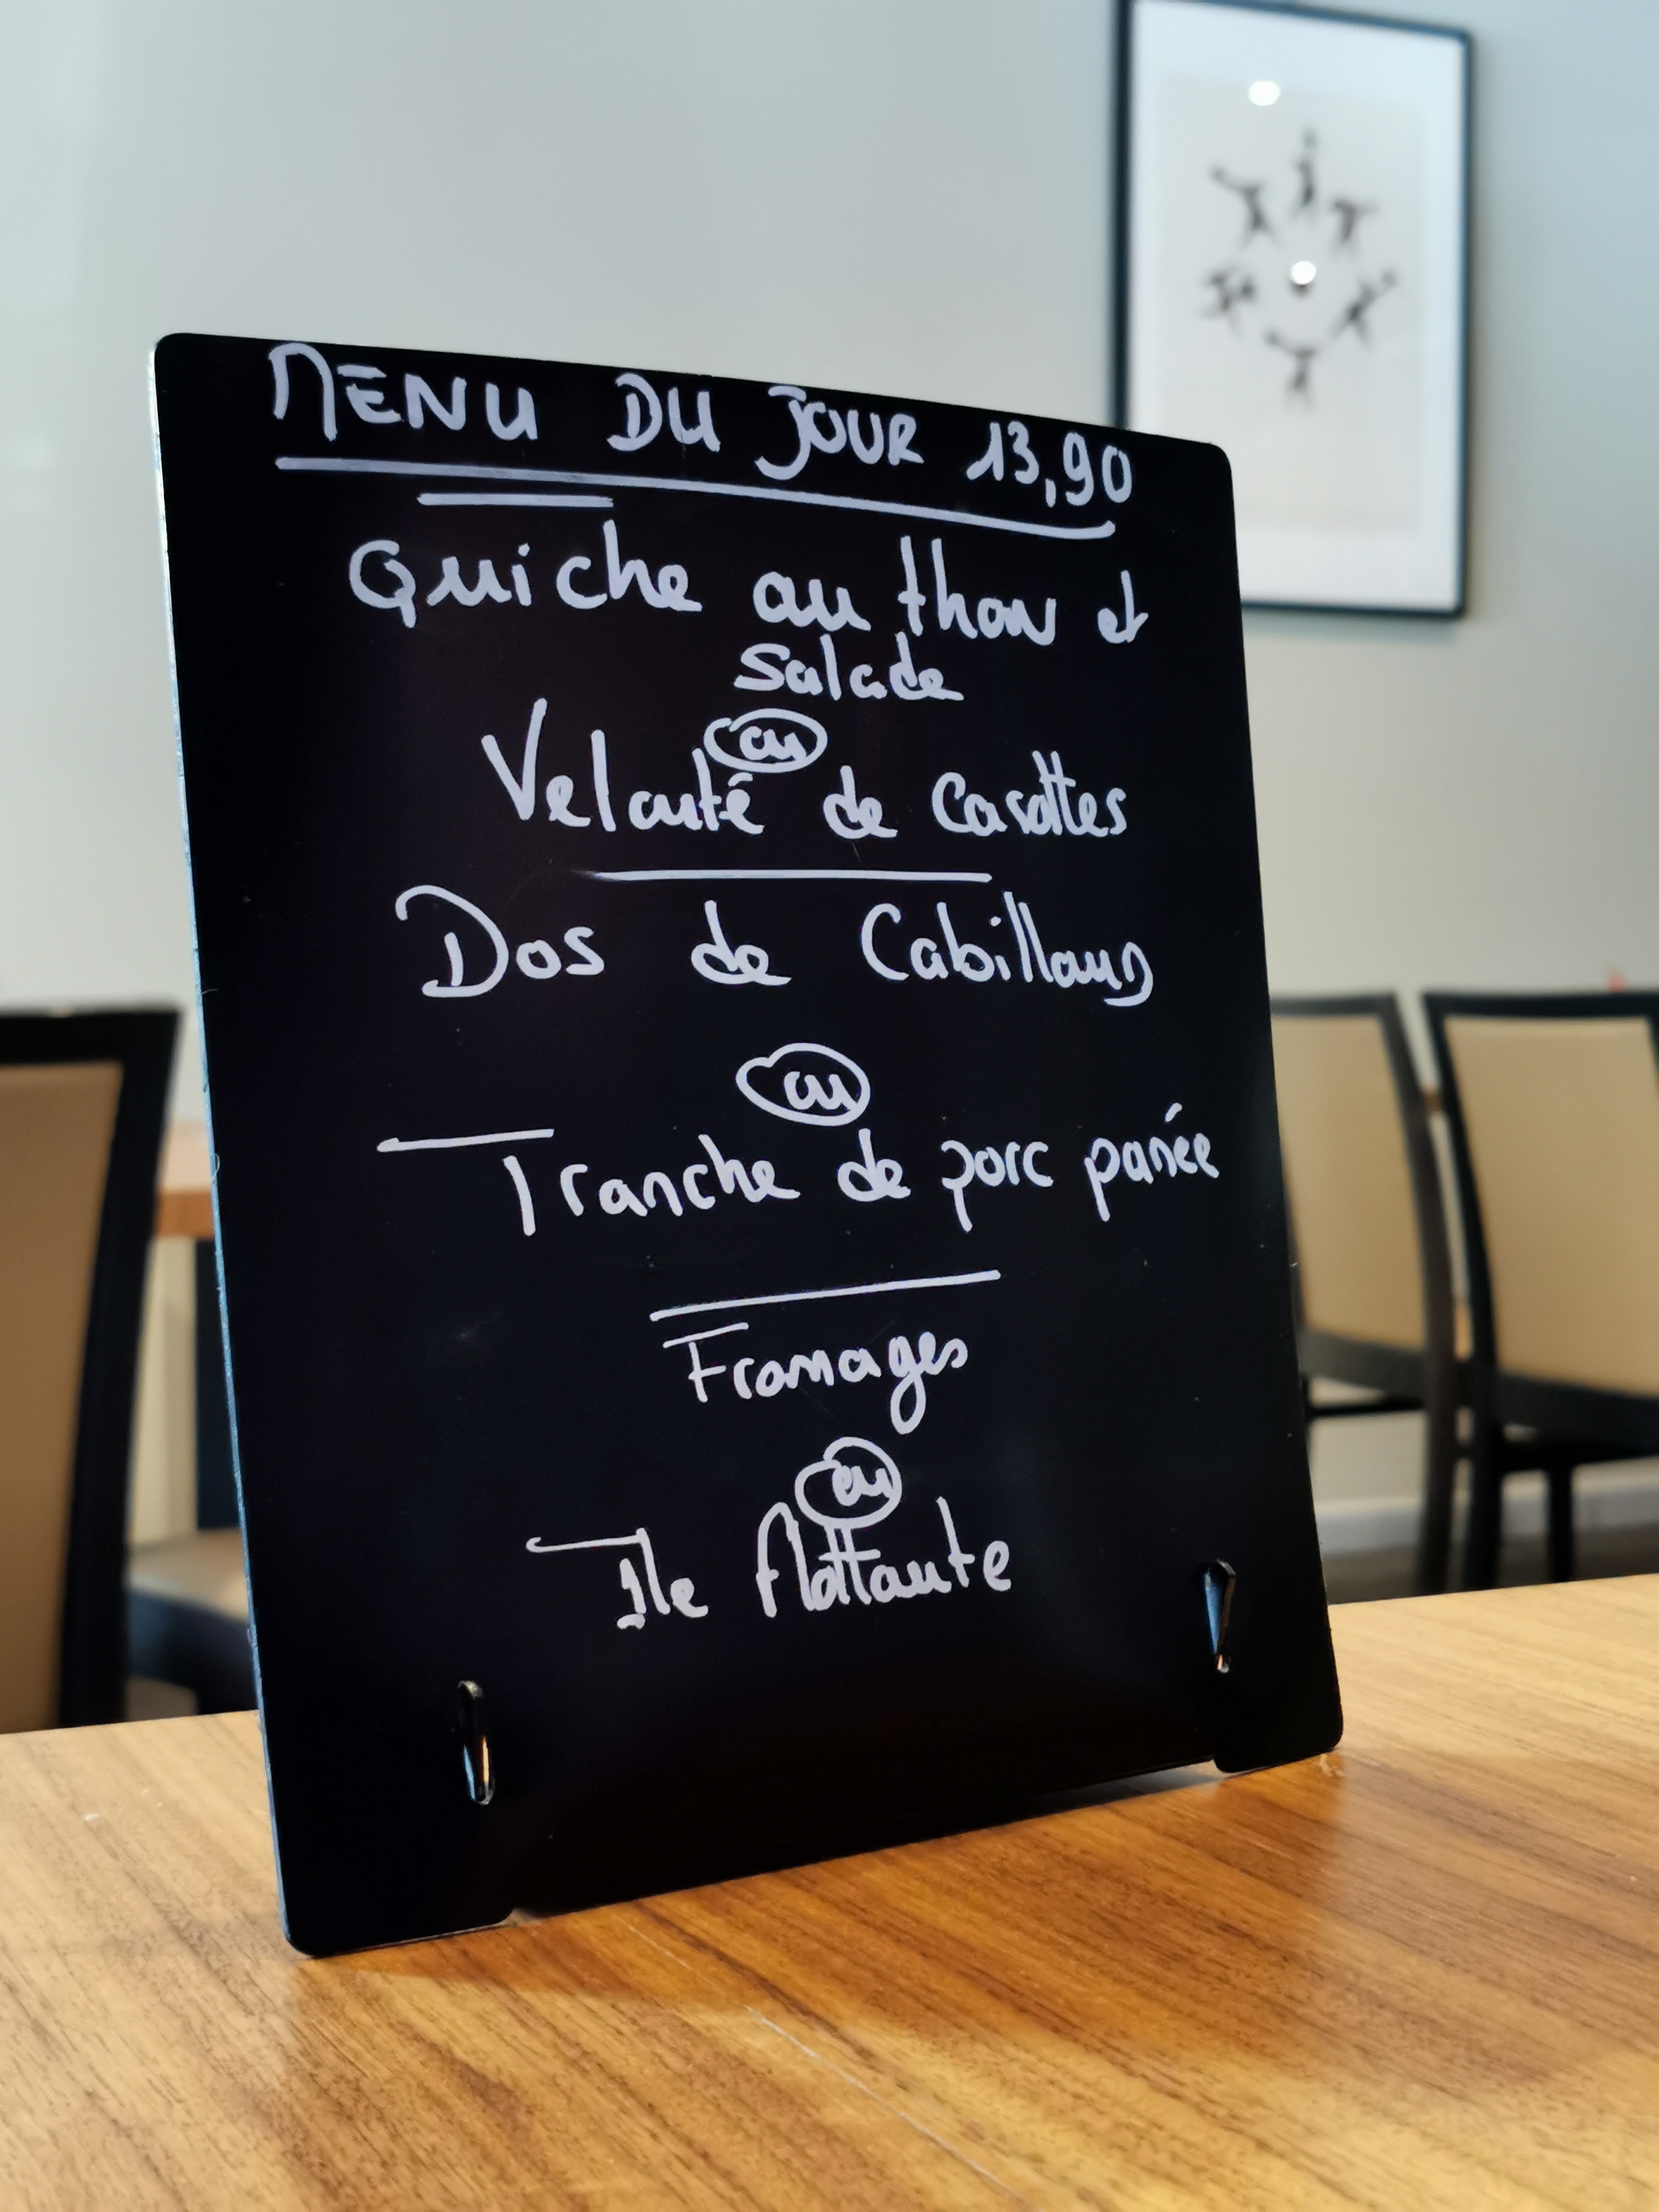 MENU DU JOUR 13,90
Quiche au thon et
salade
ou
Velouté de Carottes
Dos de Cabillaud
ou
Tranche de porc panée
Fromages
ou
Ile flottante